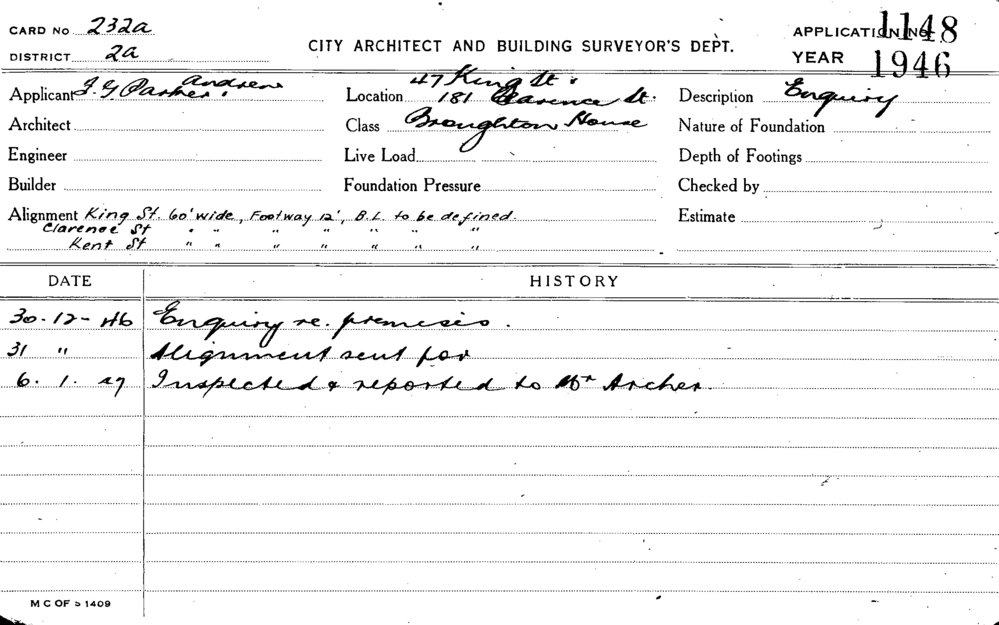 CARD No 232a
DISTRICT 2a
CITY ARCHITECT AND BUILDING SURVEYOR'S DEPT.
APPLICATION No. 1148
YEAR 1946
Applicant J. G. Parker. Andrew
Architect
Engineer
Builder
Location 47 King St.
181 Clarence St.
Class Broughton House
Live Load
Foundation Pressure
Description Enquiry
Nature of Foundation
Depth of Footings
Checked by
Estimate
Alignment King St. 60' wide, Footway 12', B.L. to be defined.
Clarence St " " " " " " "
Kent St " " " " " " "
DATE HISTORY
30-12-46 Enquiry re. premises.
31 " Alignment sent for
6. 1. 47 Inspected & reported to Mr Archer.
M C OF S 1409